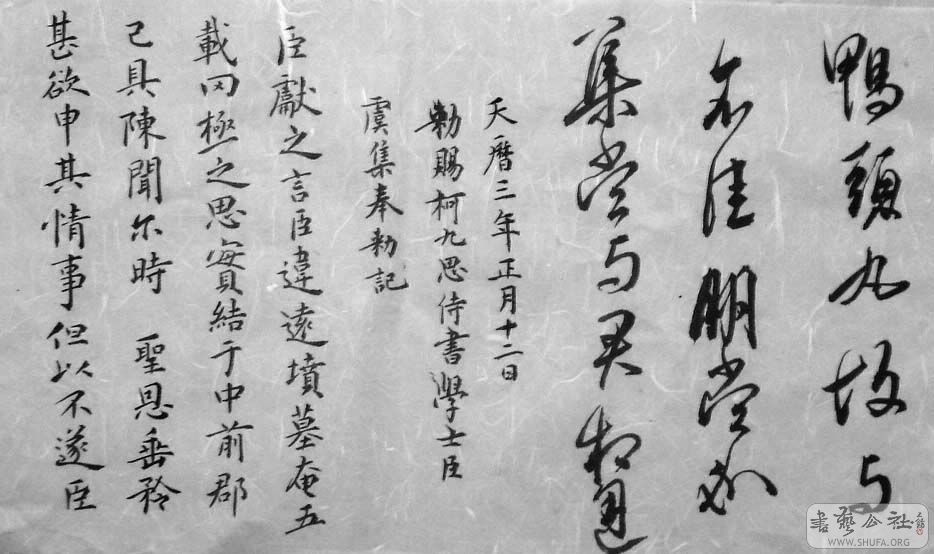 鴨頭丸故与
不佳 明當必
集當与君相見
天曆三年正月十二日
勑賜柯九思侍書學士臣
虞集奉勑記
臣獻之言臣違遠墳墓奄五
載罔極之思實結于中前郡
已具陳聞尔時 聖恩垂矜
甚欲申其情事但以不遂臣
書藝公社
WWW.SHUFA.ORG